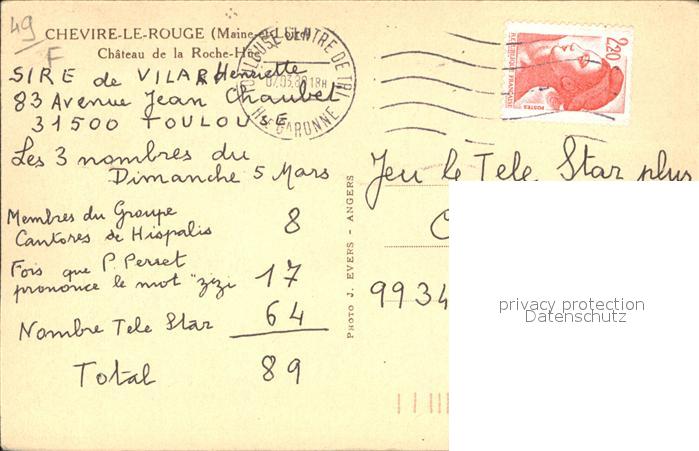 49
F
CHEVIRE-LE-ROUGE (Maine-et-Loire)
Château de la Roche-Hue
SIRE de VILAR Henriette
83 Avenue Jean Chaubet
31500 TOULOUSE
TOULOUSE CENTRE DE TRI
18H
Hte GARONNE
2,20
REPUBLIQUE FRANÇAISE
POSTES
Les 3 nombres du
Dimanche 5 Mars
Membres du Groupe
Cantores de Hispalis 8
Fois que P. Perret
prononce le mot "zizi 17
Nombre Tele Star 64
Total 89
PHOTO J. EVERS - ANGERS
Jeu le Tele Star plus
9934
privacy protection
Datenschutz